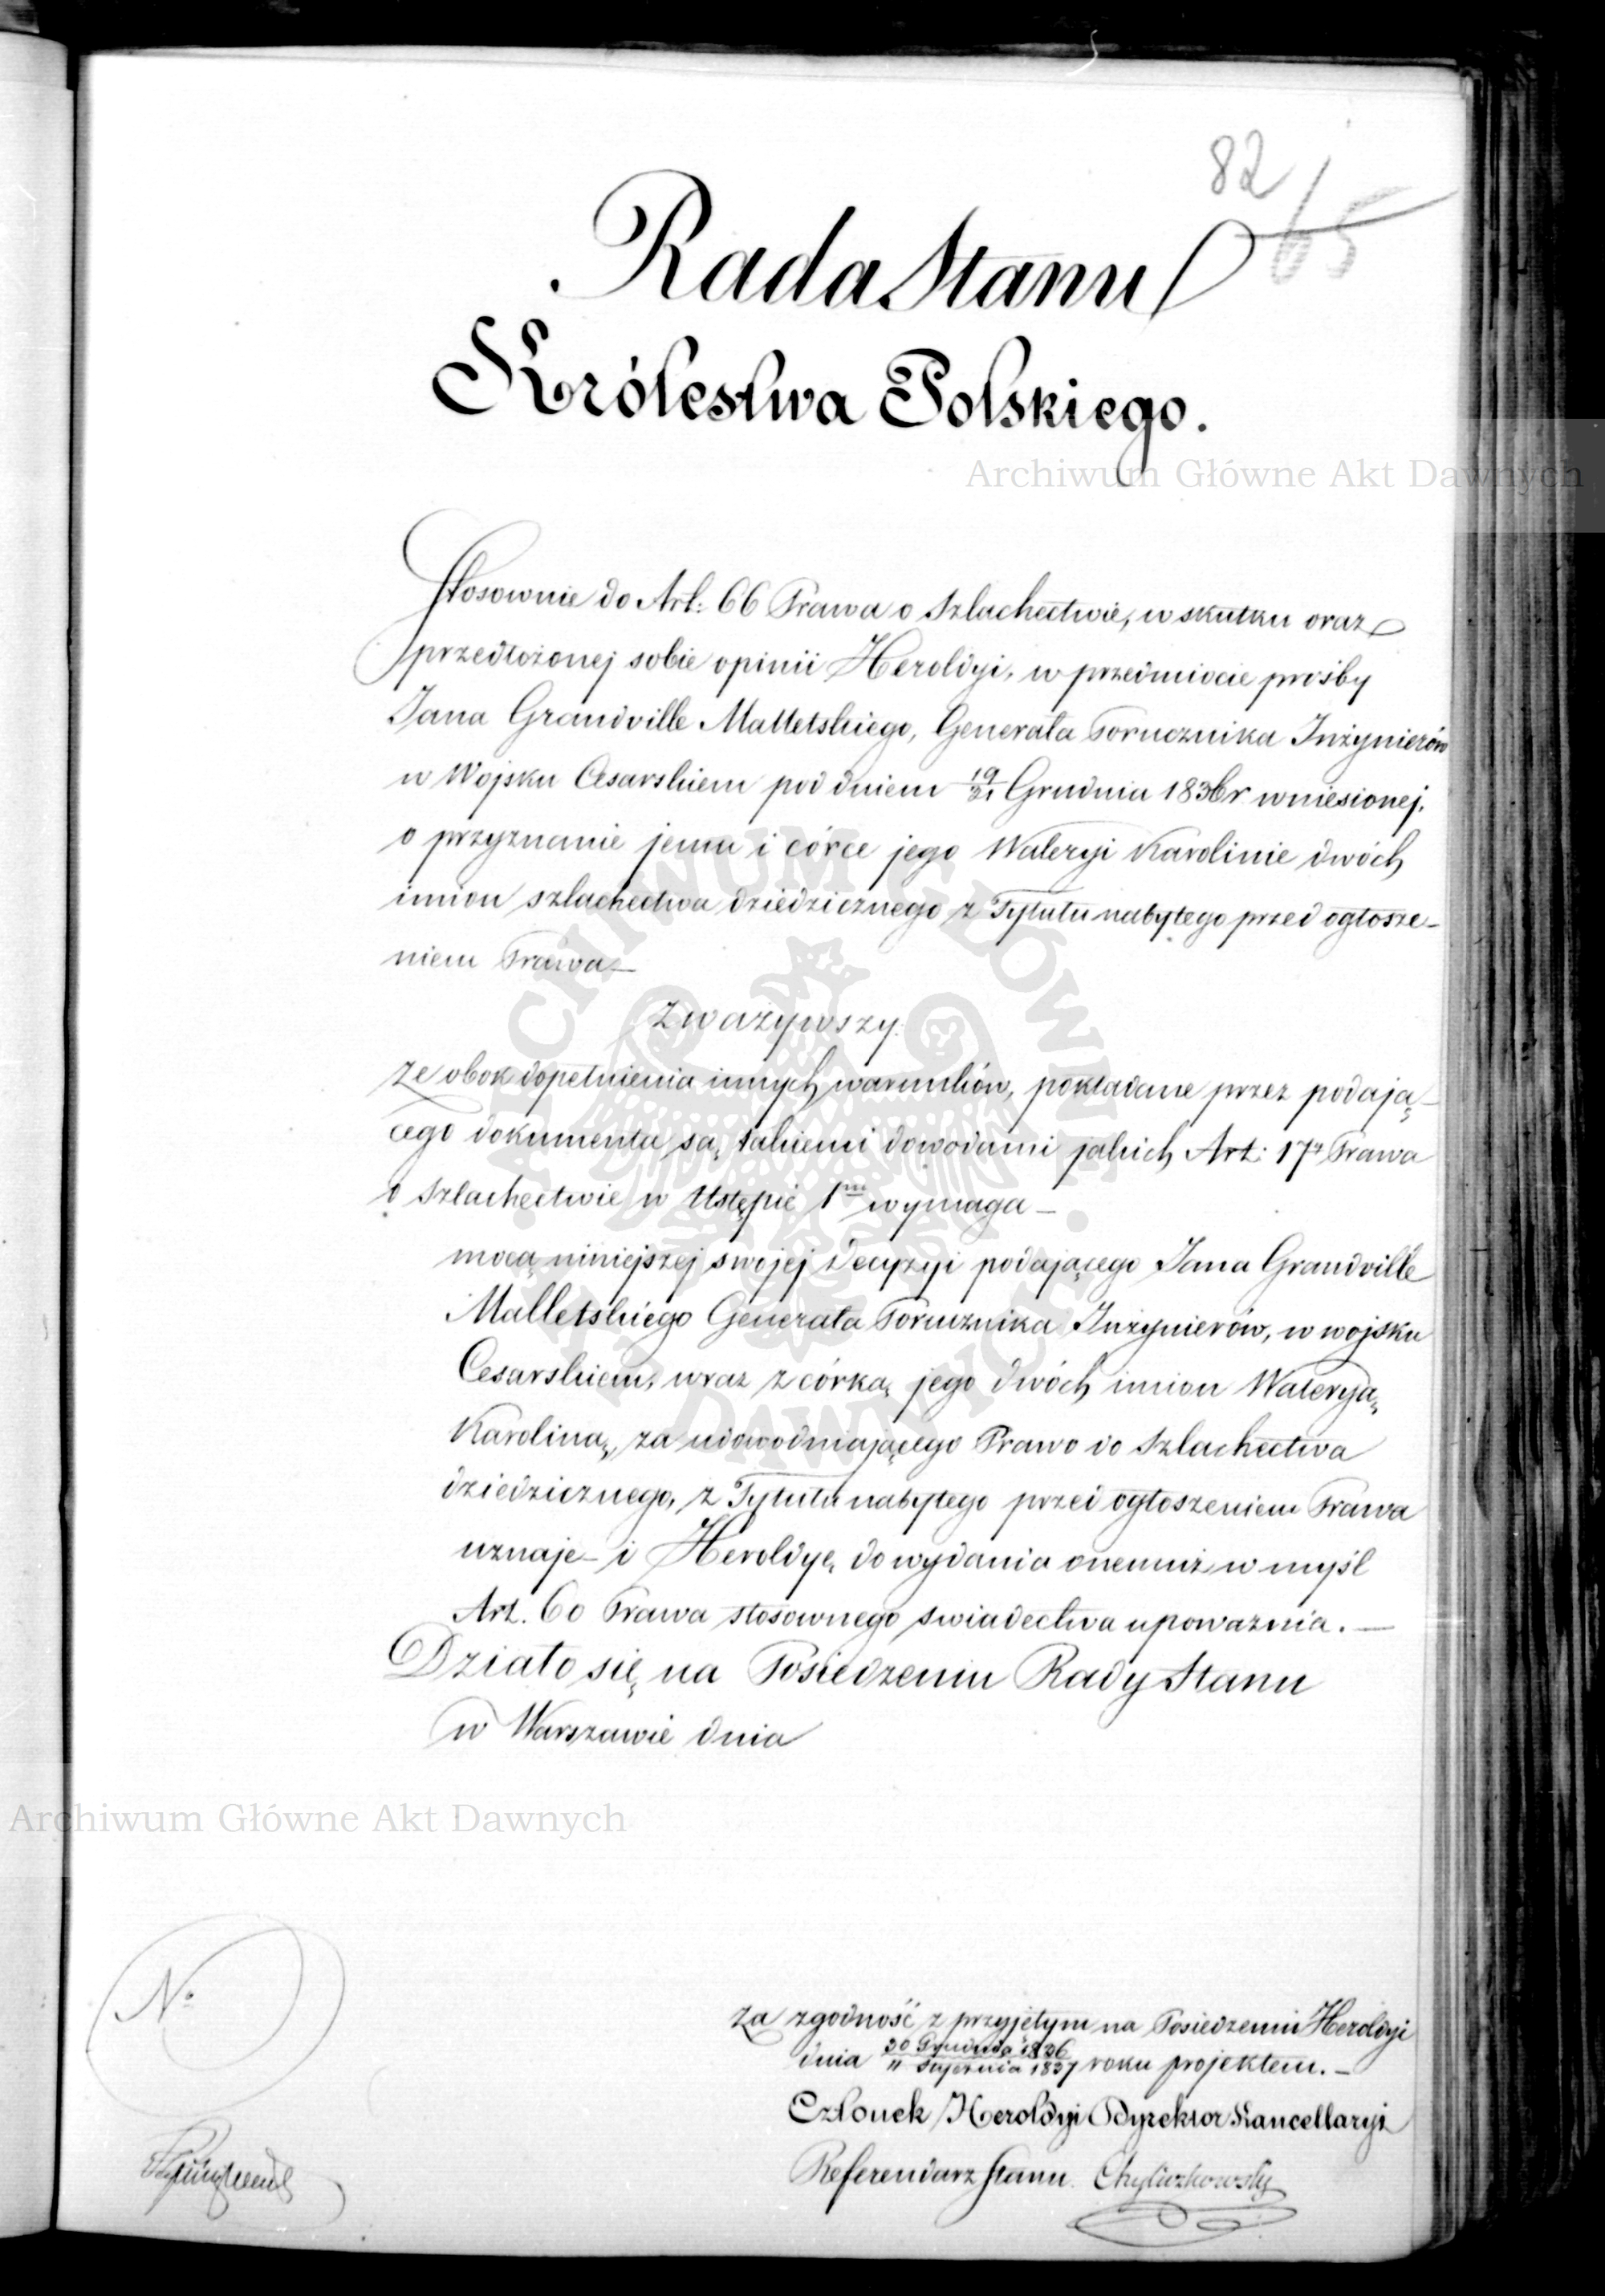 82
65
Rada Stanu
Królestwa Polskiego.
Archiwum Główne Akt Dawnych
Stosownie do Art: 66 Prawa o Szlachectwie, w skutku oraz
przedłożonej sobie opinii Heroldyi, w przedmiocie prośby
Jana Grandville Malletskiego, Generała Porucznika Inżynierów
w Wojsku Cesarskiem pod dniem 19/31 Grudnia 1836 r. wniesionej,
o przyznanie jemu i córce jego Waleryi Karolinie dwóch
imion szlachectwa dziedzicznego z Tytułu nabytego przed ogłosze-
niem Prawa—
Zważywszy.
że obok dopełnienia innych warunków, pokładane przez podają-
cego dokumenta są takiemi dowodami jakich Art: 17y Prawa
o Szlachectwie w Ustępie 1m wymaga—
mocą niniejszej swojej Decyzyi podającego Jana Grandville
Malletskiego Generała Porucznika Inżynierów, w wojsku
Cesarskiem, wraz z córką jego dwóch imion Waleryą
Karoliną, za udowodniającego Prawo do Szlachectwa
dziedzicznego, z Tytułu nabytego przed ogłoszeniem Prawa
uznaje— i Heroldyę do wydania onemuż w myśl
Art. 60 Prawa stosownego świadectwa upoważnia.—
Działo się na Posiedzeniu Rady Stanu
w Warszawie dnia
Archiwum Główne Akt Dawnych
No
Za zgodność z przyjętym na Posiedzeniu Heroldyi
dnia 30 Grudnia 1836/11 Stycznia 1837 roku projektem.—
Członek Heroldyi Dyrektor Kancellaryi
Referendarz Stanu. Chyliczkowski
ARCHIWUM GŁÓWNE AKT DAWNYCH